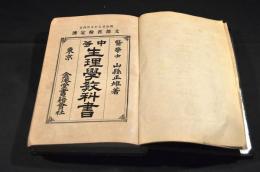 文部省檢定濟
醫學士 山縣正雄著
中等
生理學教科書
東京 金港堂書籍會社